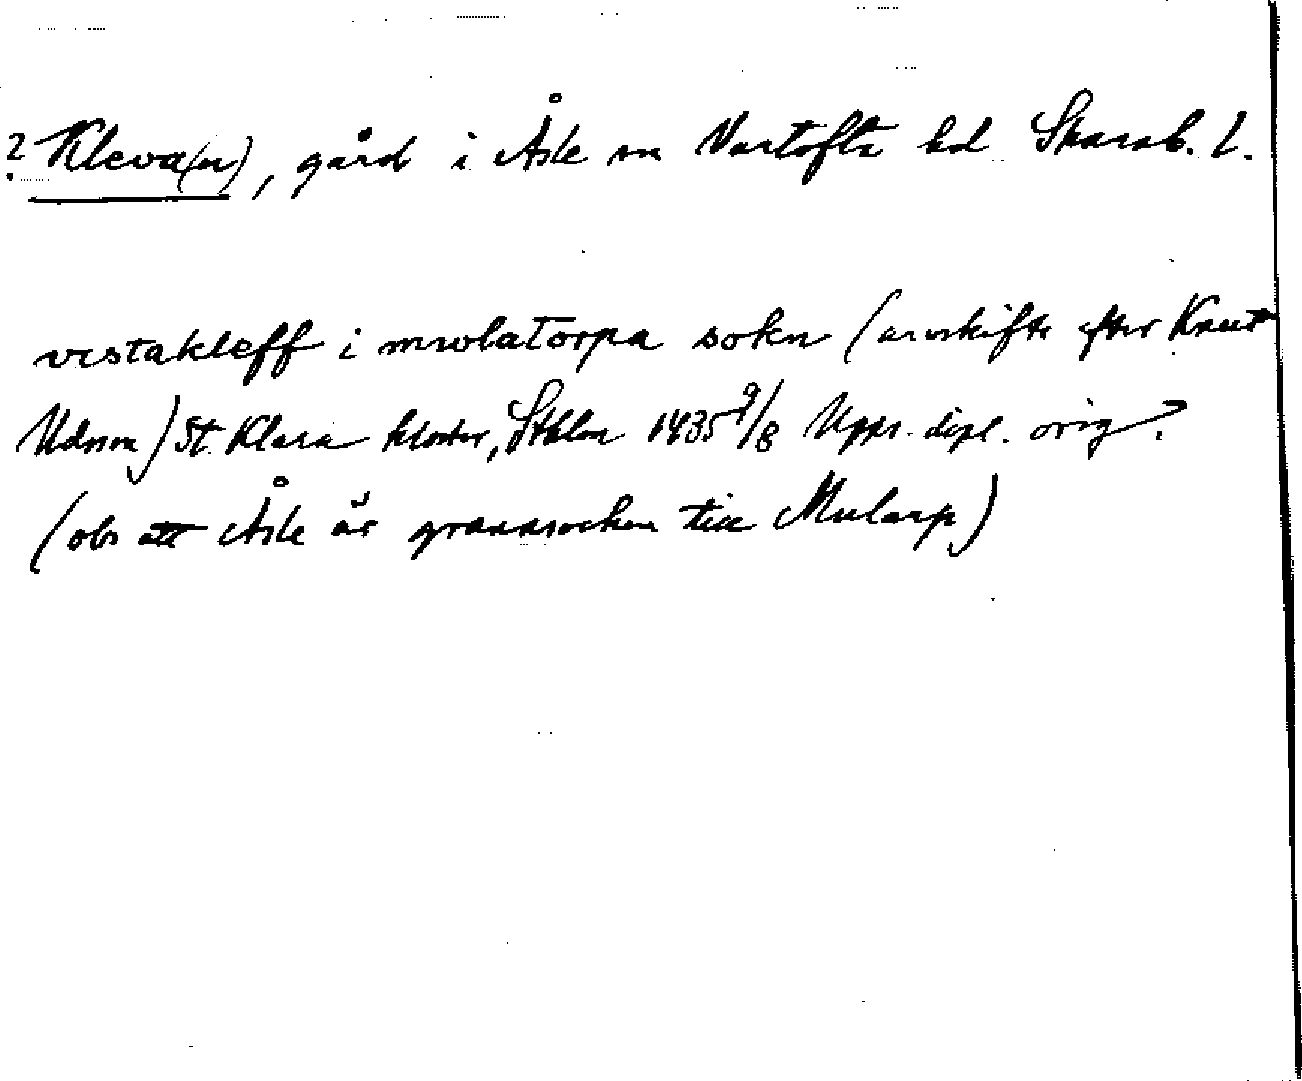 ? Kleva(n), gård i Åsle sn Vartofta hd Skarab. l.
vestakleff i mwlatorpa sokn (arvskifte efter Knut
Udsson) St. Klara kloster, Sthlm 1435 9/8 Upps. dipl. orig?
(obs att Åsle är grannsocken till Mularp)